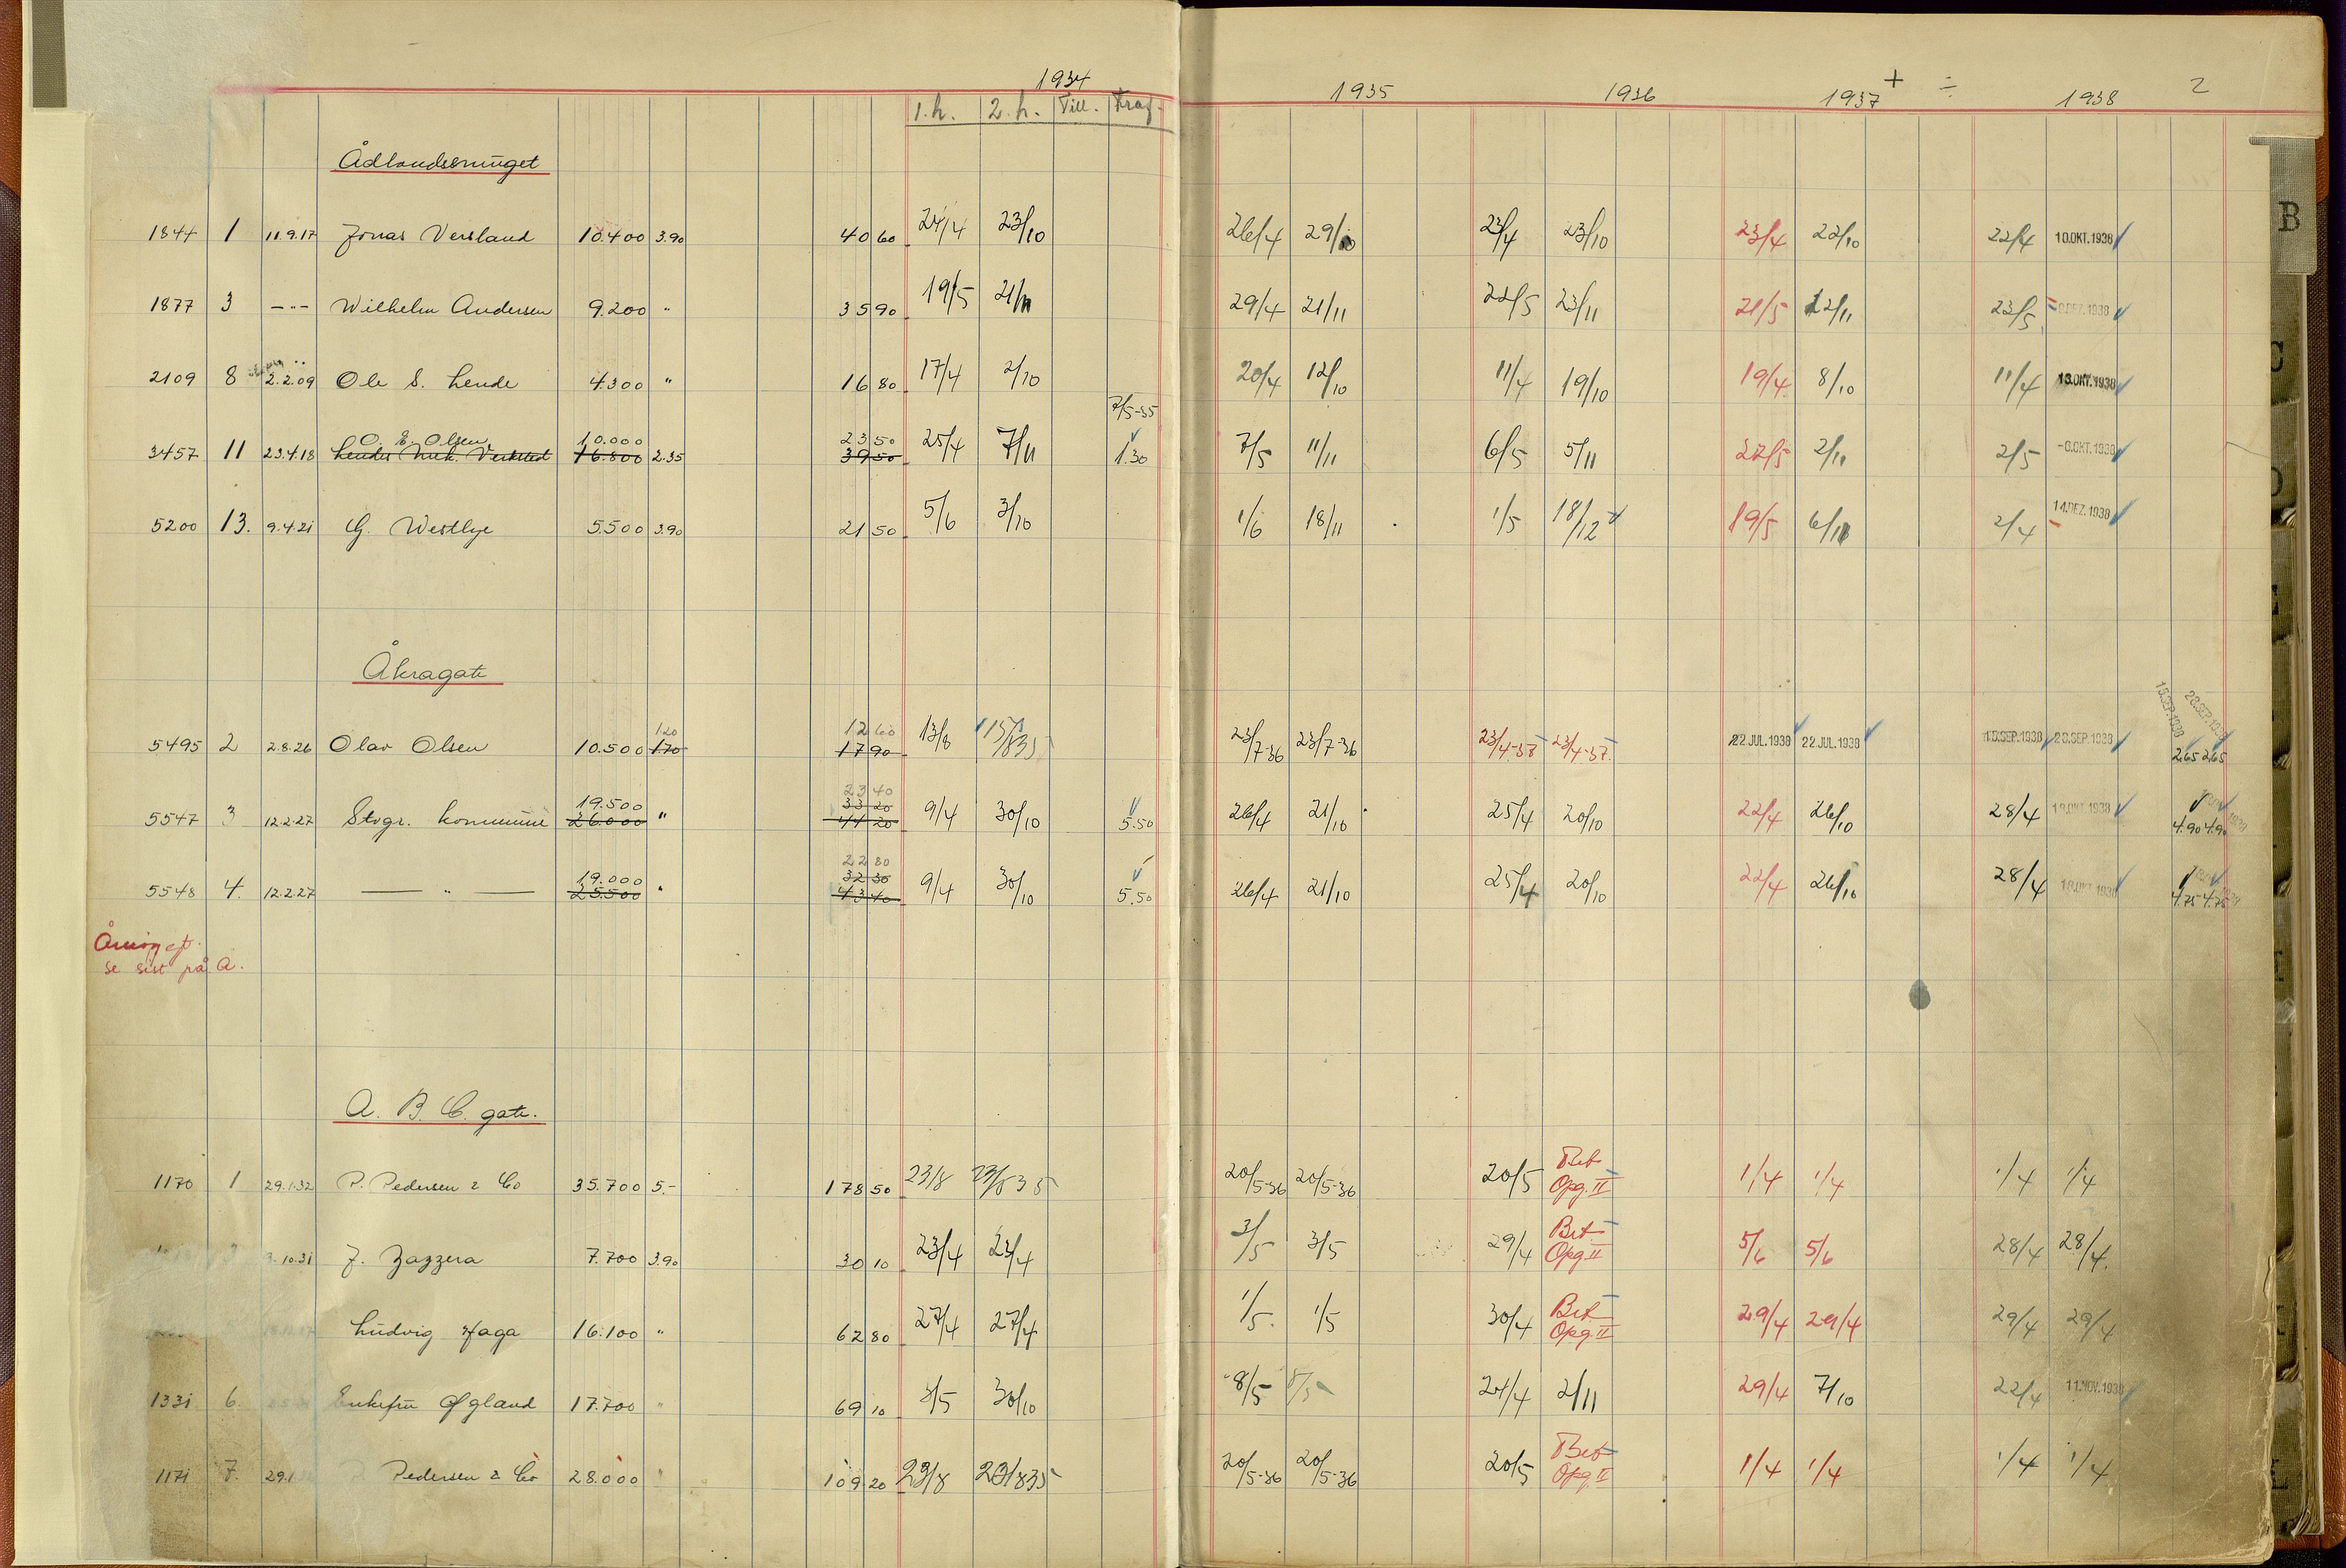 1934 1935 1936 1937 + ÷ 1938 2
1.h. 2.h. Till. Frag.
Ådlandssmuget
1844 1 11.9.17 Jonas Versland 10.400 3.90 40 60 24/4 23/10 26/4 29/10 23/4 23/10 23/4 22/10 22/4 10.OKT.1938
1877 3 --- Wilhelm Andersen 9.200 " 35 90 19/5 21/11 29/4 21/11 22/5 23/11 21/5 22/11 23/5 DEZ.1938
2109 8 2.2.09 Ole S. Lende 4.300 " 16 80 17/4 2/10 20/4 12/10 11/4 19/10 19/4 8/10 11/4 13.OKT.1938
7/5-35
O. E. Olsen 10.000 23 50
3457 11 23.4.18 Lendes Mek. Verksted 16.800 2.35 39 50 25/4 7/11 1.30 7/5 11/11 6/5 5/11 27/5 2/11 2/5 -6.OKT.1938
5200 13. 9.4.21 G. Westlye 5.500 3.90 21 50 5/6 3/10 1/6 18/11 1/5 18/12 19/5 6/11 2/4 14.DEZ.1938
Åkragate
15.SEP.1938 28.SEP.1938
1.20 12 60
5495 2 2.8.26 Olav Olsen 10.500 1.70 17 90 13/8 15/8 35 23/7-36 23/7-36 23/4-38 23/4-37. 22.JUL.1938 22.JUL.1938 15.SEP.1938 28.SEP.1938 2.65 2.65
23 40
19.500 33 20
5547 3 12.2.27 Stvgr. kommune 26.000 " 44 20 9/4 30/10 5.50 26/4 21/10 25/4 20/10 22/4 26/10 28/4 18.OKT.1938 4.90 4.90
22 80
19.000 32 30
5548 4. 12.2.27 — " — 25.500 " 43 40 9/4 30/10 5.50 26/4 21/10 25/4 20/10 22/4 26/10 28/4 18.OKT.1938 4.75 4.75
se sist på A.
A. B. C. gate.
1170 1 29.1.32 P. Pedersen & Co 35.700 5.- 178 50 23/8 23/8 35 20/5-36 20/5-36 20/5 Bet Opg. II 1/4 1/4 1/4 1/4
10.31 J. Zazzera 7.700 3.90 30 10 23/4 23/4 3/5 3/5 29/4 Bet Opg II 5/6 5/6 28/4 28/4.
Ludvig Haga 16.100 " 62 80 27/4 27/4 1/5. 1/5 30/4 Bet Opg. II 29/4 29/4 29/4 29/4
1331 6. Enkefru Øgland 17.700 " 69 10 3/5 30/10 8/5 8/5 24/4 2/11 29/4 7/10 22/4 11.NOV.1938
1171 7. 29.1 Pedersen & Co 28.000 " 109 20 23/8 23/8 35 20/5-36 20/5-36 20/5 Bet Opg II 1/4 1/4 1/4 1/4
B